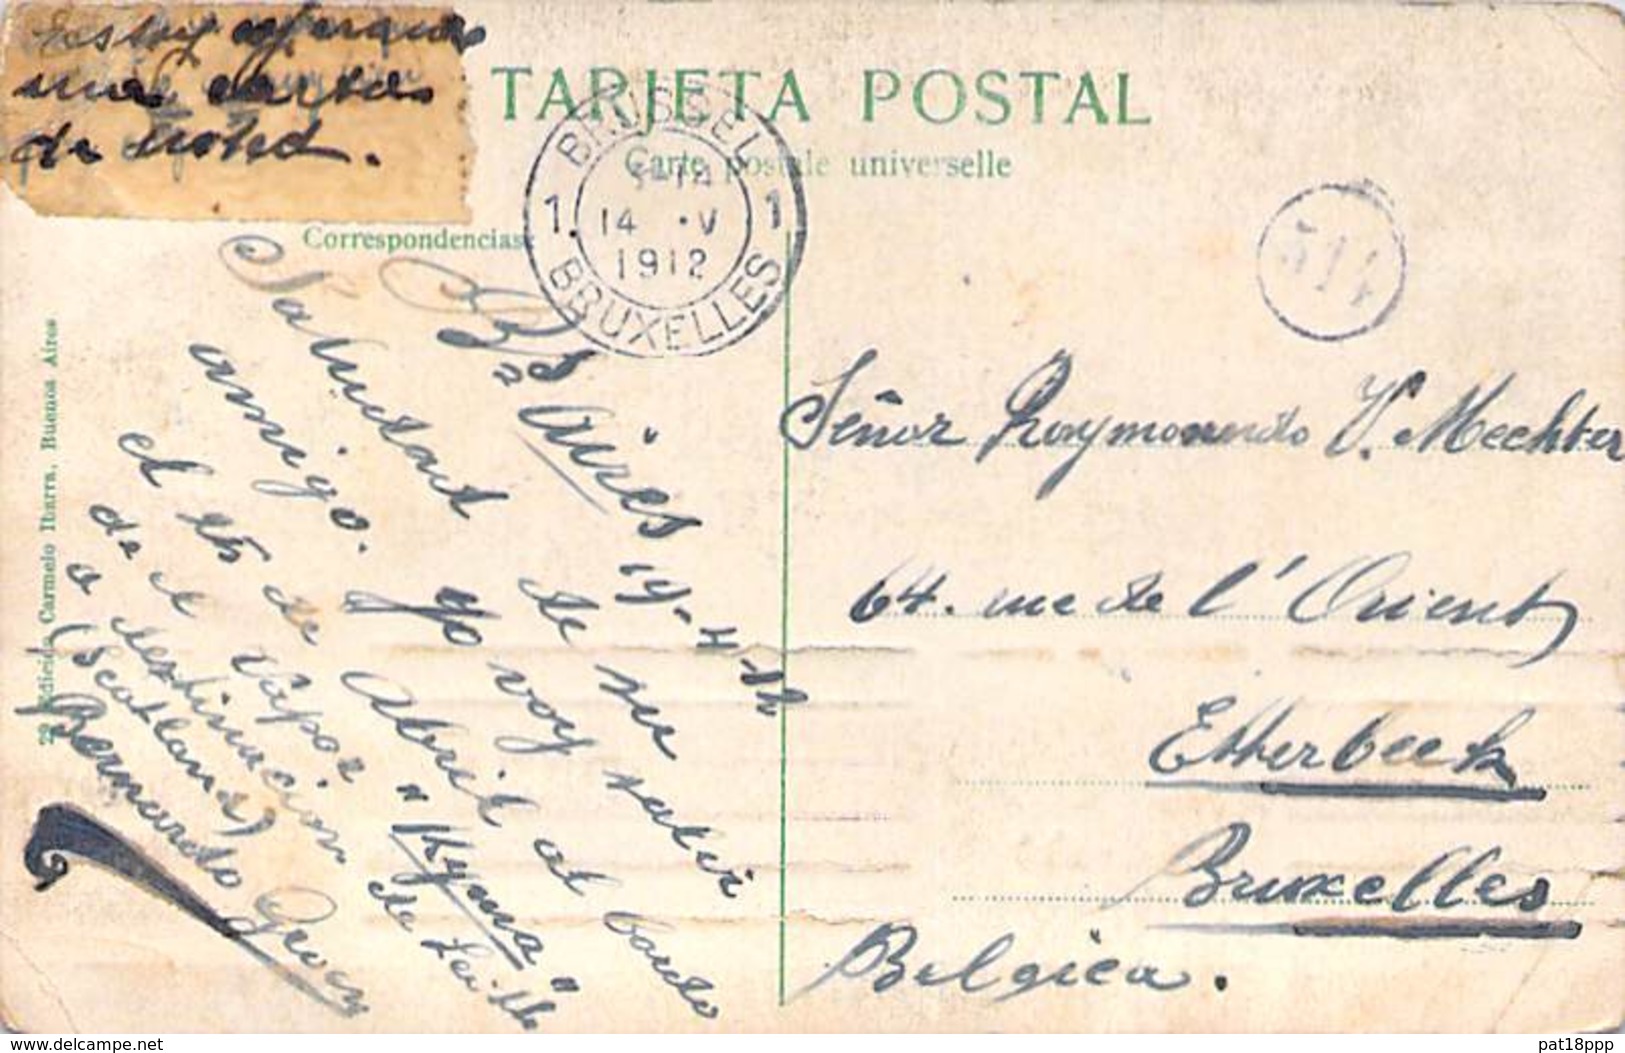 Estoy esperando
una cartas
de usted.
TARJETA POSTAL
Carte postale universelle
Correspondencias:
BRUSSEL
1 1
14 · V
1912
BRUXELLES
514
Bs Aires 19-4-12
Saludant de su
amigo. Yo voy al bordo
el 25 de Abril
de el vapor "Kyma" de Leith
a destinacion
(Scotland)
Bernardo
Señor Raymondo V. Mechter
64. rue de l'Orient
Etterbeek
Bruxelles
Belgica.
Edición Carmelo Ibarra, Buenos Aires
http://www.delcampe.net
pat18ppp